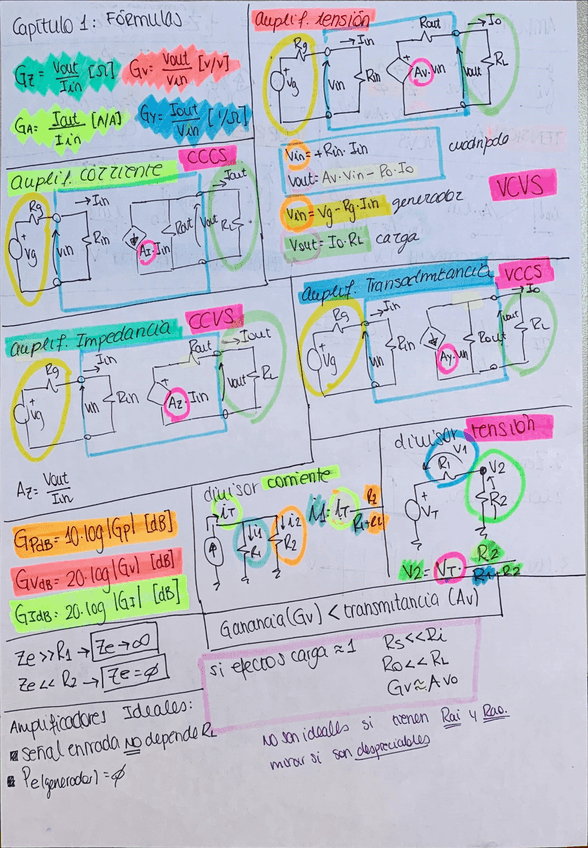 Capítulo 1: Fórmulas
Gz = Vout/Iin [Ω] Gv = Vout/Vin [V/V]
GA = Iout/Iin [A/A] Gy = Iout/Vin [1/Ω]
Amplif. tensión
Rg Iin Rout Io
+ Vg Vin Rin Av·Vin Vout RL
Vin = +Rin·Iin
Vout = Av·Vin - Ro·Io
cuadripolo
VCVS
Vin = Vg - Rg·Iin generador
Vout = Io·RL carga
Amplif. corriente CCCS
Rg Iin Iout
+ Vg Vin Rin AI·Iin Rout Vout RL
Amplif. Transadmitancia VCCS
Rg Iin Io
+ Vg Vin Rin Ay·Vin Rout Vout RL
Amplif. Impedancia CCVS
Rg Iin Rout Iout
+ Vg Vin Rin Az·Iin Vout RL
Az = Vout/Iin
divisor corriente
iT i1 R1 i2 R2
i1 = iT· R2/(R1+R2)
divisor tensión
V1 R1 V2
+ VT R2
V2 = VT· R2/(R1+R2)
GpdB = 10·log|Gp| [dB]
GvdB = 20·log|Gv| [dB]
GIdB = 20·log|GI| [dB]
Ganancia (Gv) < transmitancia (Av)
Ze >> R1 → Ze → ∞
Ze << R2 → Ze = ϕ
si efectos carga ≈ 1 Rs << Ri
Ro << RL
Gv ≈ Avo
Amplificadores Ideales:
señal entrada NO depende RL
Pe(generador) = ϕ
No son ideales si tienen Rai y Rao.
mirar si son despreciables